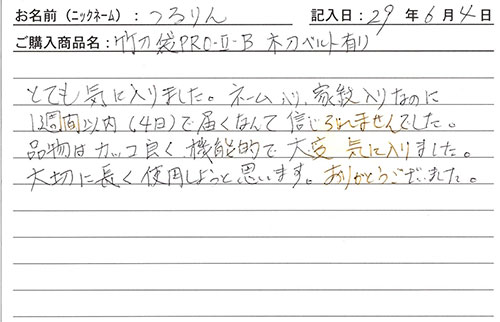 お名前(ニックネーム):つるりん 記入日:29年6月4日
ご購入商品名:竹刀袋PRO-Ⅱ-B 木刀ベルト有り
とても気に入りました。ネーム入り、家紋入りなのに
1週間以内(4日)で届くなんて信じられませんでした。
品物はカッコ良く、機能的で大変気に入りました。
大切に長く使用しようと思います。ありがとうございました。